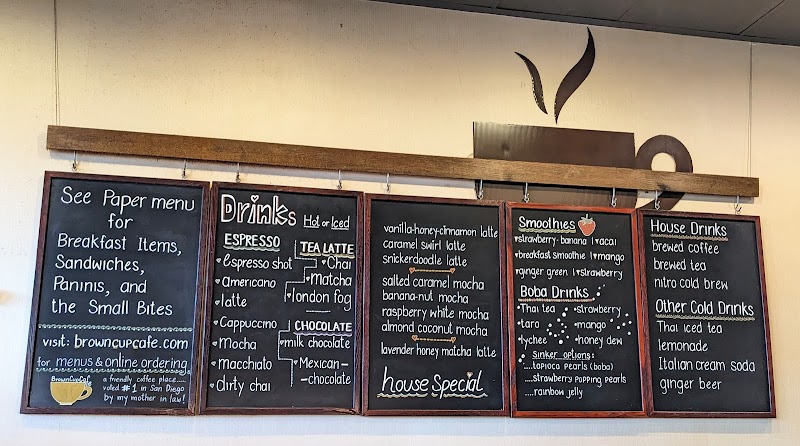 See Paper menu
for
Breakfast Items,
Sandwiches,
Paninis, and
the Small Bites
visit: browncupcafe.com
for menus & online ordering
BrownCupCafe
a friendly coffee place.....
voted #1 in San Diego
by my mother in law!
Drinks Hot or Iced
ESPRESSO
Espresso shot
Americano
latte
Cappuccino
Mocha
macchiato
dirty chai
TEA LATTE
Chai
Matcha
london fog
CHOCOLATE
milk chocolate
Mexican-
-chocolate
vanilla-honey-cinnamon latte
caramel swirl latte
snickerdoodle latte
salted caramel mocha
banana-nut mocha
raspberry white mocha
almond coconut mocha
lavender honey matcha latte
house Special
Smoothies
strawberry-banana acai
breakfast smoothie mango
ginger green strawberry
Boba Drinks
Thai tea strawberry
taro mango
lychee honey dew
Sinker options:
....tapioca pearls (boba)
....strawberry popping pearls
....rainbow jelly
House Drinks
brewed coffee
brewed tea
nitro cold brew
Other Cold Drinks
Thai iced tea
lemonade
Italian cream soda
ginger beer